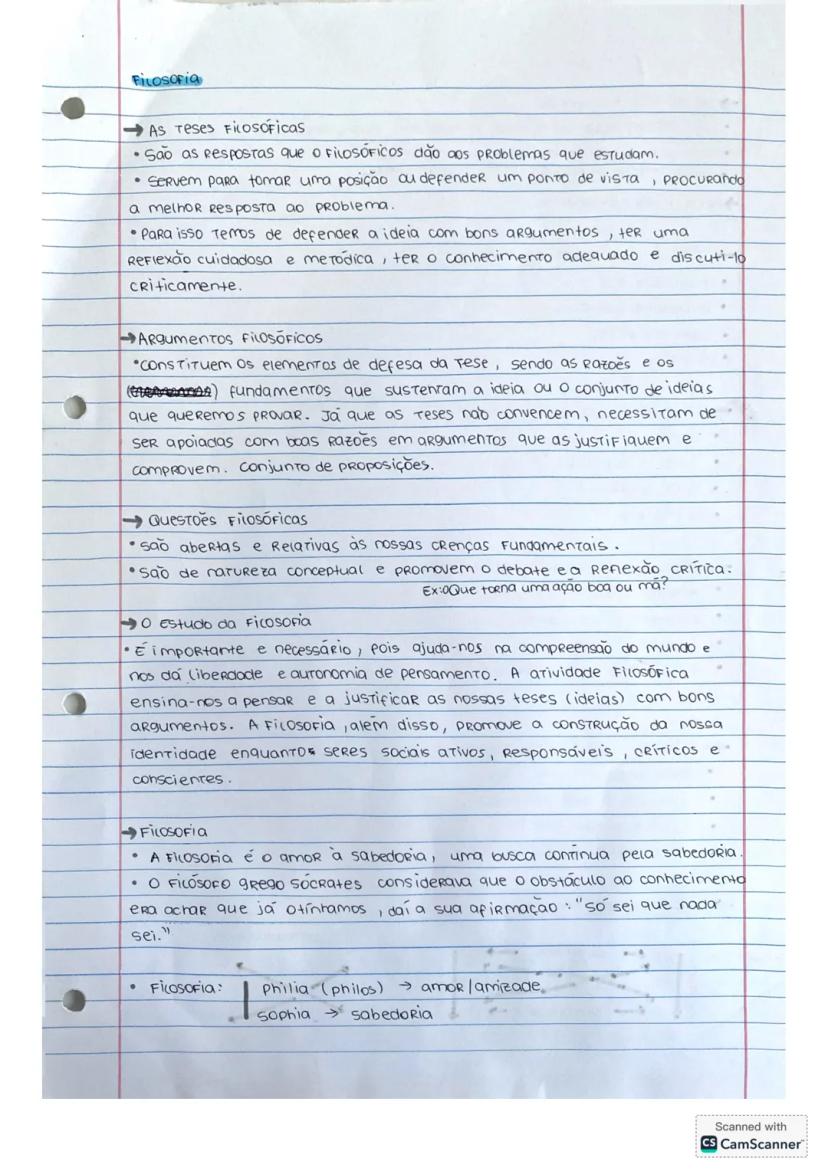 Filosofia
→ As teses filosóficas
• São as respostas que o filosóficos dão aos problemas que estudam.
• Servem para tomar uma posição ou defender um ponto de vista, procurando
a melhor resposta ao problema.
• Para isso temos de defender a ideia com bons argumentos, ter uma
reflexão cuidadosa e metódica, ter o conhecimento adequado e discuti-lo
criticamente.
→ Argumentos filosóficos
• Constituem os elementos de defesa da tese, sendo as razões e os
fundamentos que sustentam a ideia ou o conjunto de ideias
que queremos provar. Já que as teses não convencem, necessitam de
ser apoiadas com boas razões em argumentos que as justifiquem e
comprovem. Conjunto de proposições.
→ Questões filosóficas
• São abertas e relativas às nossas crenças fundamentais.
• São de natureza conceptual e promovem o debate e a reflexão crítica.
Ex: O Que torna uma ação boa ou má?
→ O estudo da filosofia
• É importante e necessário, pois ajuda-nos na compreensão do mundo e
nos dá liberdade e autonomia de pensamento. A atividade filosófica
ensina-nos a pensar e a justificar as nossas teses (ideias) com bons
argumentos. A filosofia, além disso, promove a construção da nossa
identidade enquanto seres sociais ativos, responsáveis, críticos e
conscientes.
→ Filosofia
• A filosofia é o amor à sabedoria, uma busca contínua pela sabedoria.
• O filósofo grego Sócrates considerava que o obstáculo ao conhecimento
era achar que já o tínhamos, daí a sua afirmação: "só sei que nada
sei."
• Filosofia: philia (philos) → amor/amizade
sophia → sabedoria
Scanned with
CS CamScanner